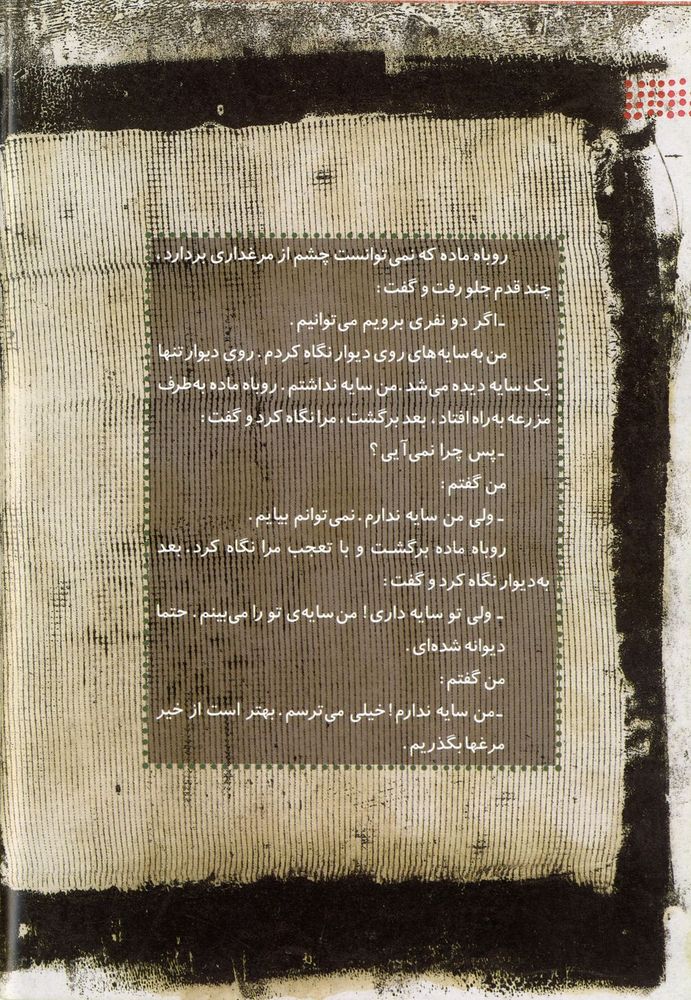 روباه ماده که نمی‌توانست چشم از مرغداری بردارد،
چند قدم جلو رفت و گفت:
ـ اگر دو نفری برویم می‌توانیم.
من به سایه‌های روی دیوار نگاه کردم. روی دیوار تنها
یک سایه دیده می‌شد. من سایه نداشتم. روباه ماده به‌طرف
مزرعه به‌راه افتاد، بعد برگشت، مرا نگاه کرد و گفت:
ـ پس چرا نمی‌آیی؟
من گفتم:
ـ ولی من سایه ندارم. نمی‌توانم بیایم.
روباه ماده برگشت و با تعجب مرا نگاه کرد. بعد
به‌دیوار نگاه کرد و گفت:
ـ ولی تو سایه داری! من سایه‌ی تو را می‌بینم. حتما
دیوانه شده‌ای.
من گفتم:
ـ من سایه ندارم! خیلی می‌ترسم. بهتر است از خیر
مرغها بگذریم.